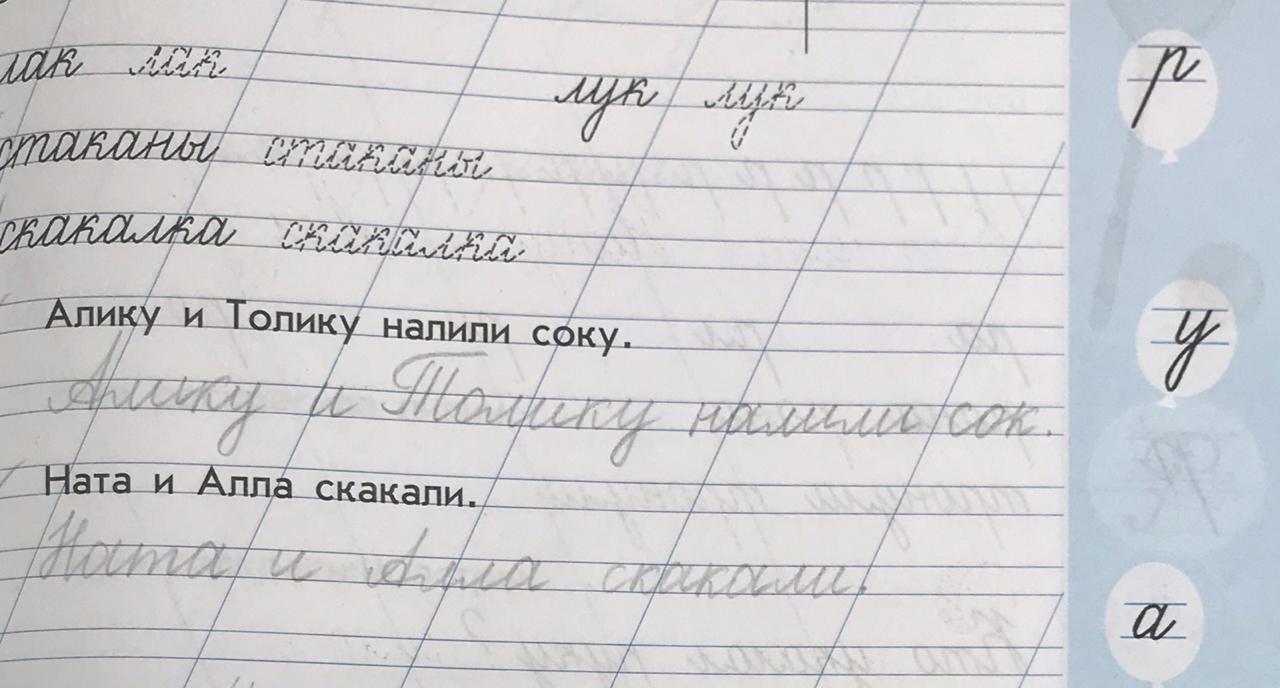 лак лак
лук лук
стаканы стаканы
скакалка скакалка
Алику и Толику налили соку.
Алику и Толику налили сок.
Ната и Алла скакали.
Ната и Алла скакали.
р
у
а